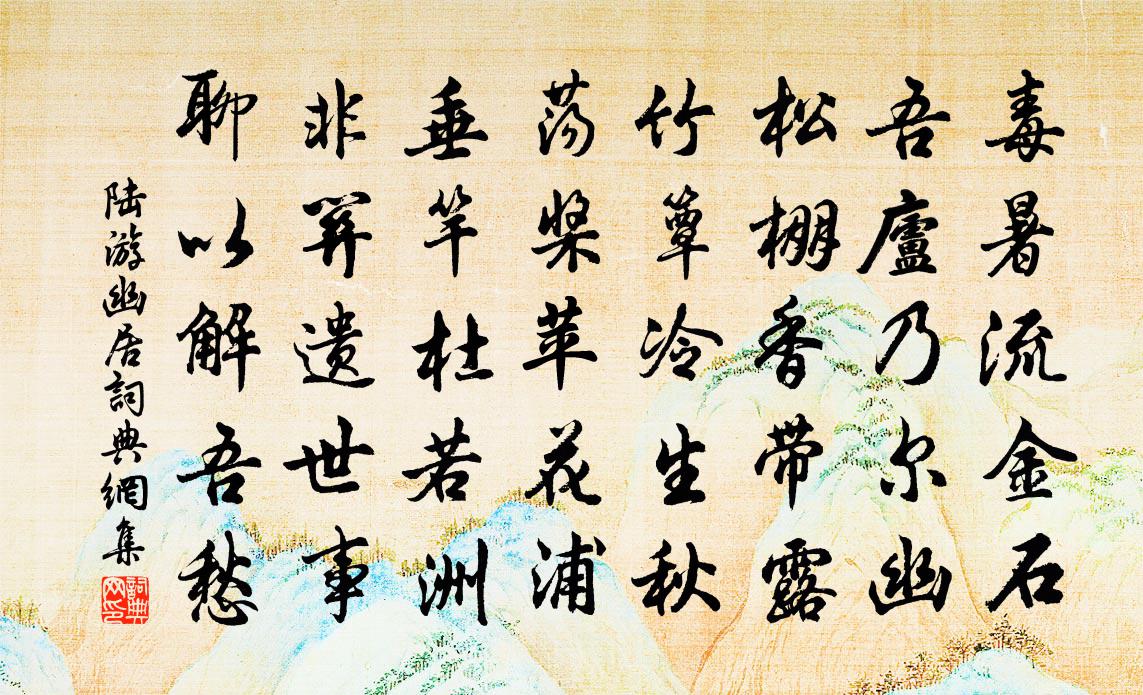 毒暑流金石
吾廬乃尔幽
松棚香带露
竹簟冷生秋
荡桨苹花浦
垂竿杜若洲
非關遗世事
聊以解吾愁
陆游幽居詞典網集
詞典網印